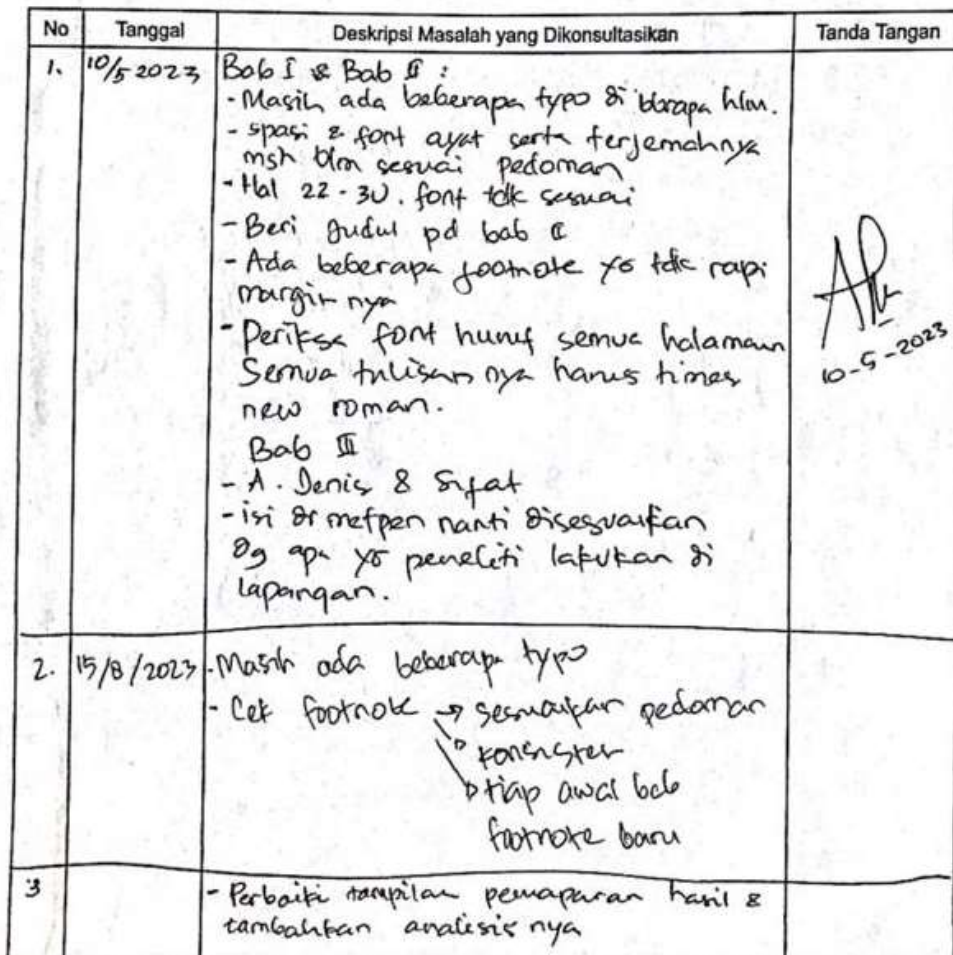 No Tanggal Deskripsi Masalah yang Dikonsultasikan Tanda Tangan
1. 10/5 2023 Bab I & Bab II :
- Masih ada beberapa typo di bbrapa hlm.
- spasi & font ayat serta terjemahnya
msh blm sesuai pedoman
- Hal 22 - 30. font tdk sesuai
- Beri Judul pd bab II
- Ada beberapa footnote yg tdk rapi
margin nya
- Periksa font huruf semua halaman
Semua tulisan nya harus times
new roman.
10-5-2023
Bab III
- A. Jenis & Sifat
- isi dr metpen nanti disesuaikan
dg apa yg peneliti lakukan di
lapangan.
2. 15/8/2023 - Masih ada beberapa typo
- Cek footnote → sesuaikan pedoman
→ konsisten
→ tiap awal bab
footnote baru
3 - Perbaiki tampilan pemaparan hasil &
tambahkan analisis nya